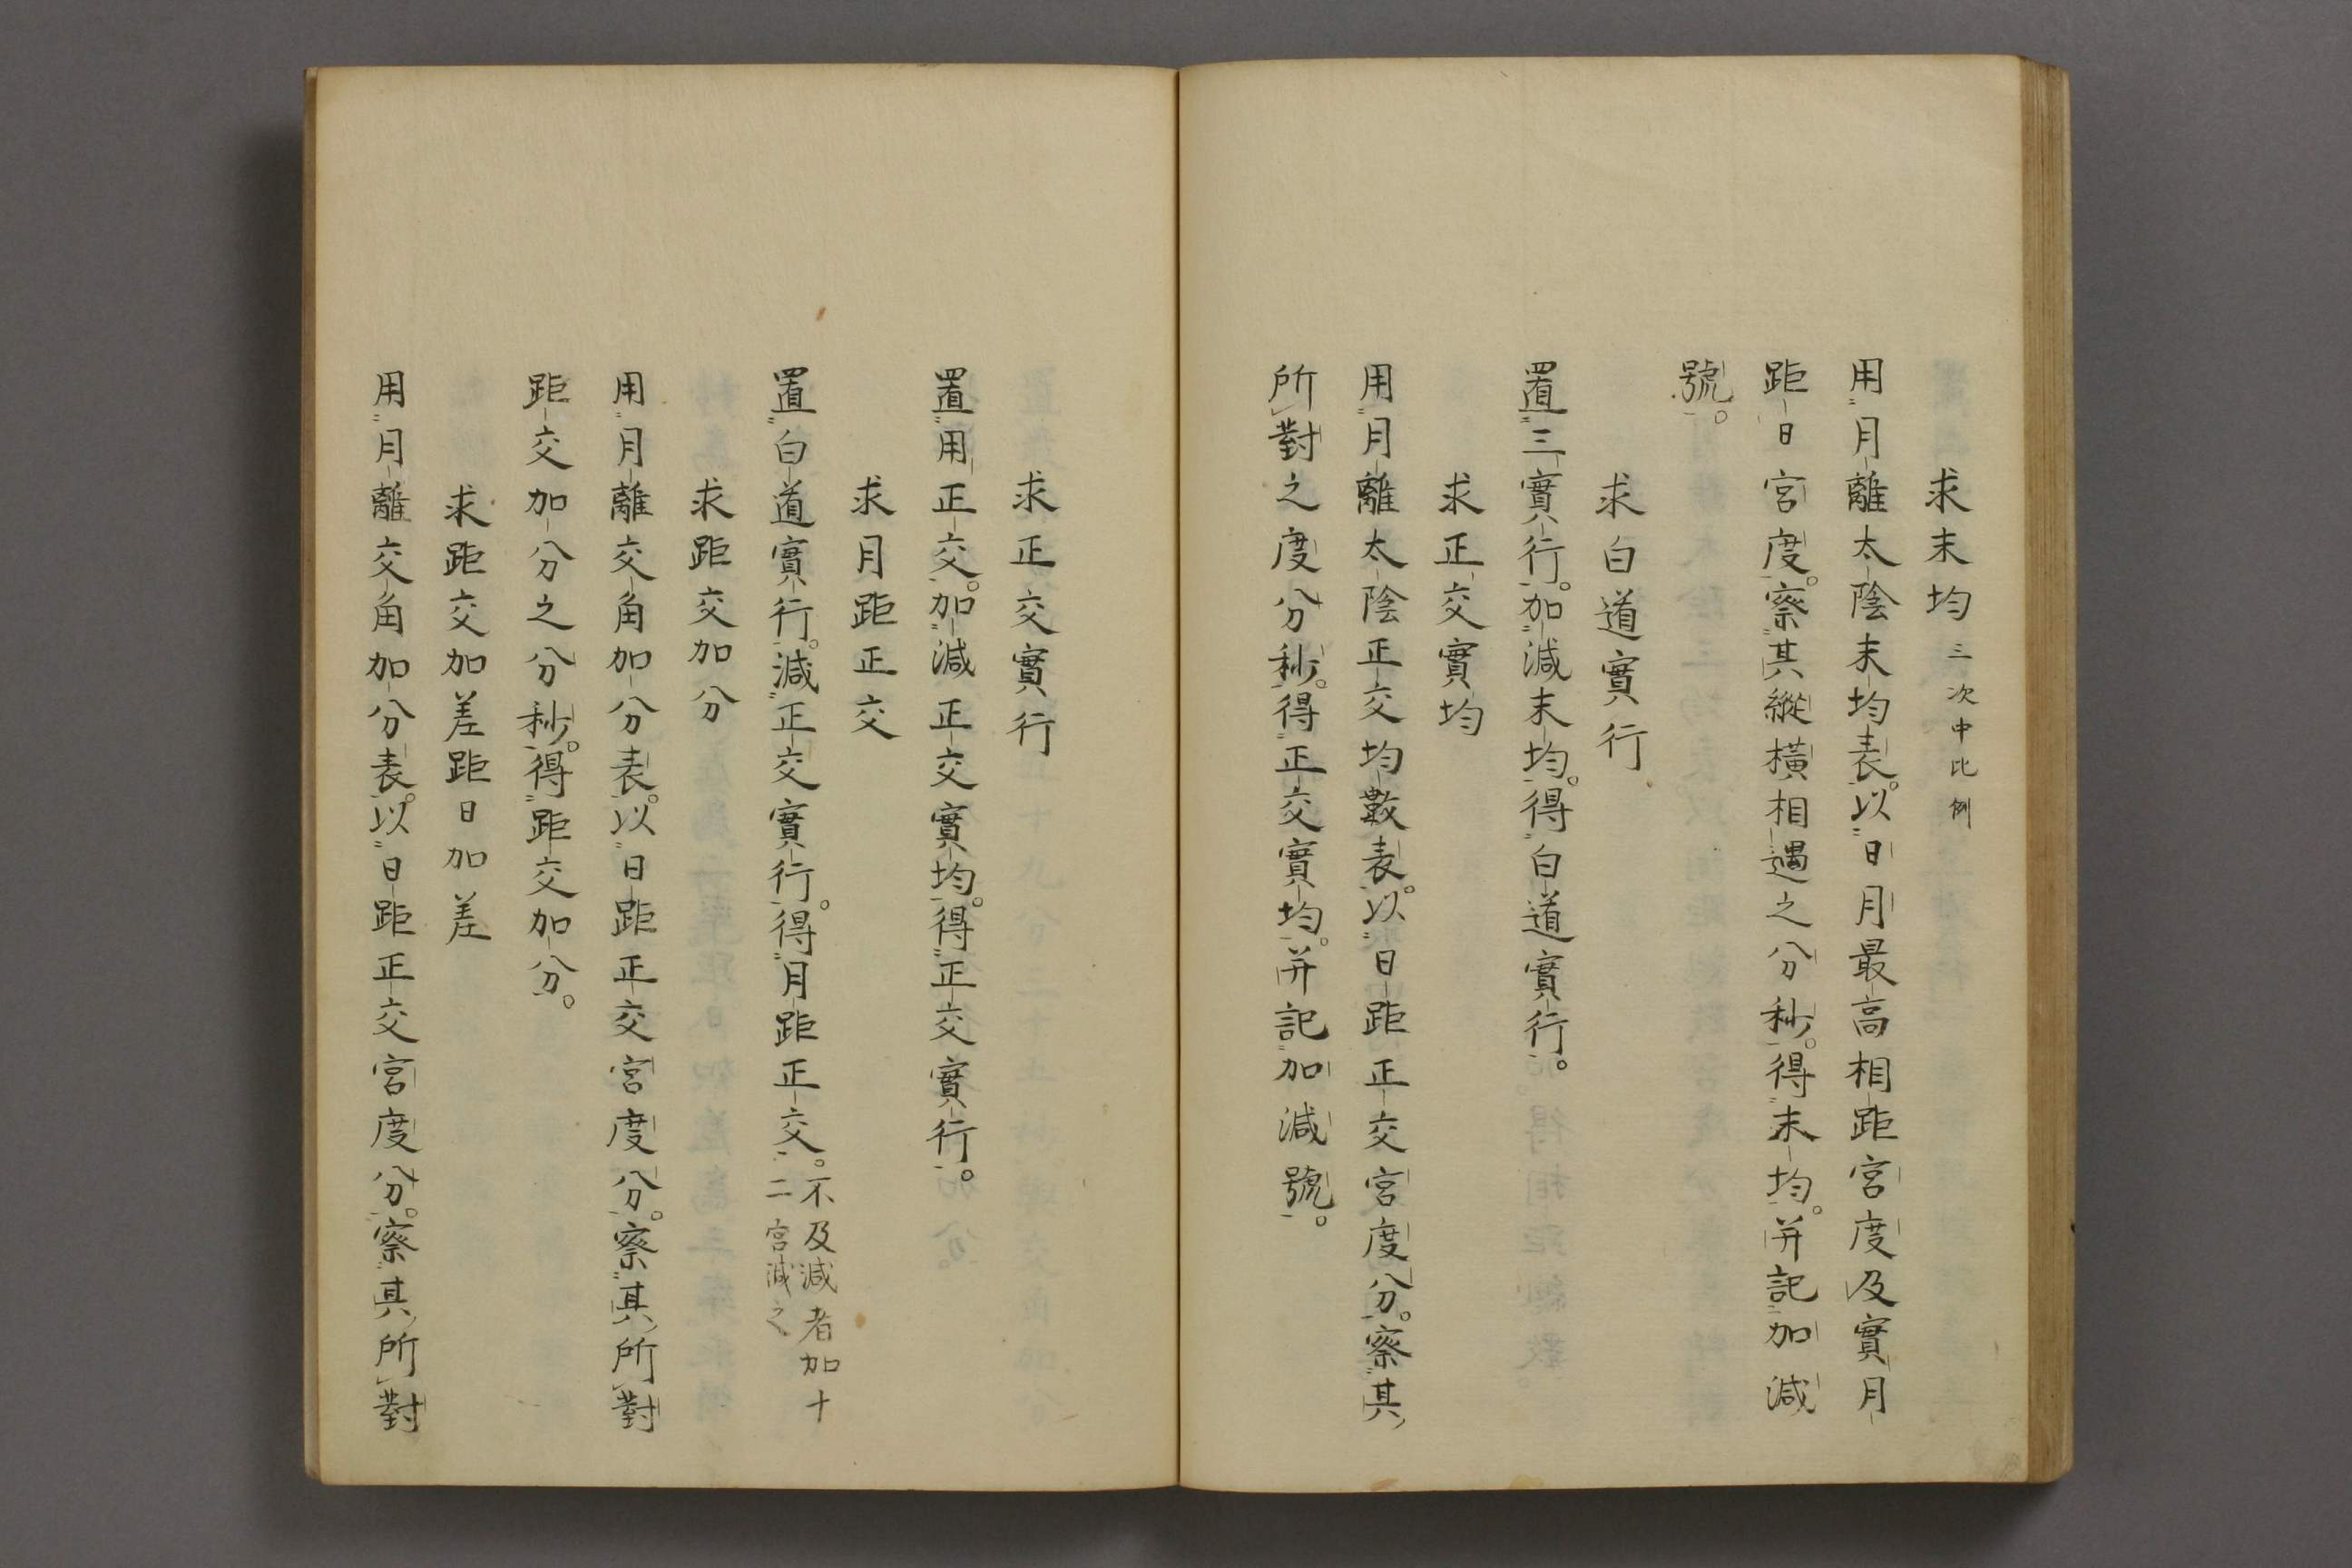 求末均 三次中比例
用月離太陰末均表。以日月最高相距宮度及實月
距日宮度。察其縱橫相遇之分秒。得末均。并記加減
號。
求白道實行
置三實行。加減末均。得白道實行。
求正交實均
用月離太陰正交均數表。以日距正交宮度分。察其
所對之度分秒。得正交實均。并記加減號。
求正交實行
置用正交。加減正交實均。得正交實行。
求月距正交
置白道實行。減正交實行。得月距正交。不及減者加十
二宮減之
求距交加分
用月離交角加分表。以日距正交宮度分。察其所對
距交加分之分秒。得距交加分。
求距交加差距日加差
用月離交角加分表。以日距正交宮度分。察其所對